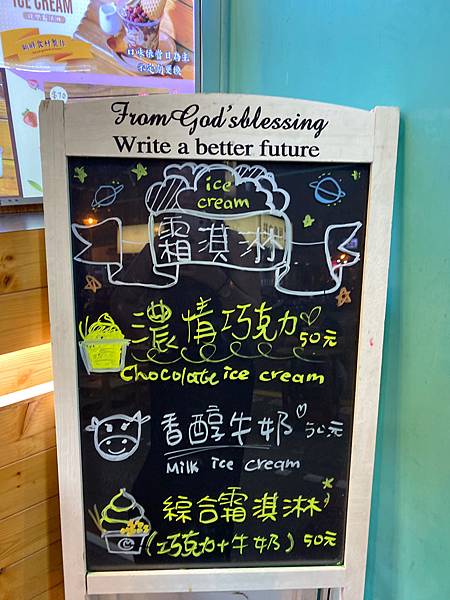 ICE CREAM
新鮮食材製作
口味依當日為主
不定期更換
From God'sblessing
Write a better future
ice
cream
霜淇淋
濃情巧克力 50元
Chocolate ice cream
香醇牛奶 50元
Milk ice cream
綜合霜淇淋
(巧克力+牛奶) 50元